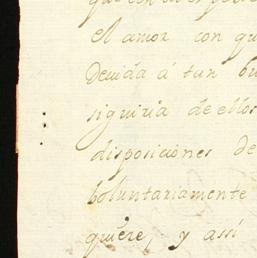 que con
el amor con qu
Devida á tan bu
siguiria de ellos
disposiciones de
boluntariamente
quiere, y assí